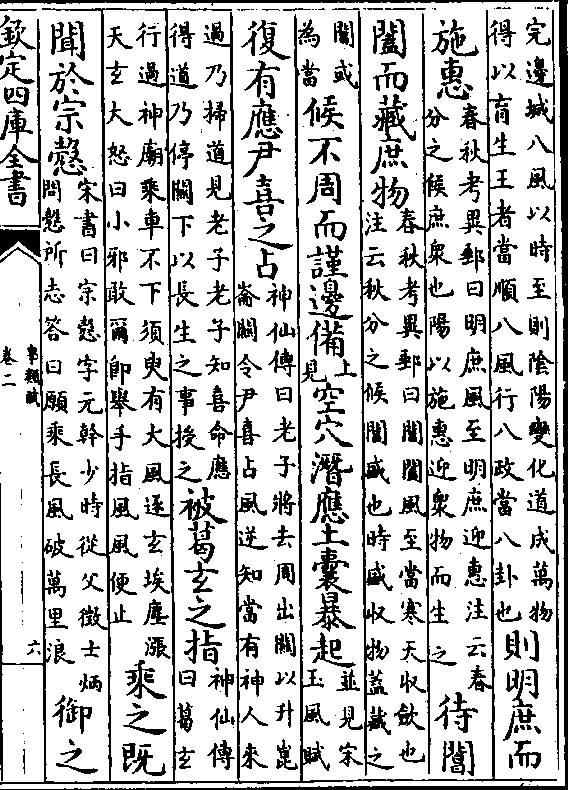 完邊城八風以時至則陰陽變化道成萬物
得以育生王者當順八風行八政當八卦也
則明庶而
施惠
春秋考異郵曰明庶風至明庶迎惠注云春
分之候庶衆也陽以施惠迎衆物而生之
待閶
闔而藏庶物
春秋考異郵曰閶闔風至當寒天收斂也
注云秋分之候閶盛也時盛收物蓋藏之
閶或
為當
候不周而謹邊備
上
見
空穴潛應土囊暴起
並見宋
玉風賦
復有應尹喜之占
神仙傳曰老子將去周出關以升崑
崙關令尹喜占風逆知當有神人來
過乃掃道見老子老子知喜命應
得道乃停關下以長生之事授之
被葛玄之指
神仙傳
曰葛玄
行過神廟乘車不下須臾有大風逐玄埃塵漲
天玄大怒曰小邪敢爾即舉手指風風便止
乘之既
聞於宗慤
宋書曰宗慤字元幹少時從父徵士炳
問慤所志答曰願乘長風破萬里浪
御之
欽定四庫全書
事類賦
卷二
六